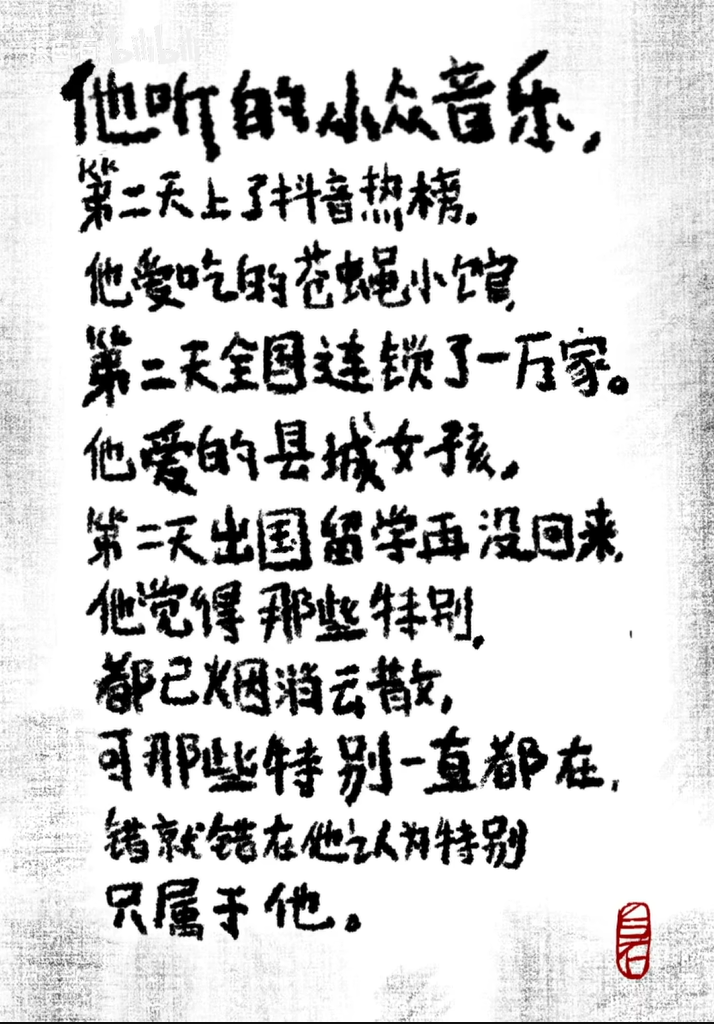 bilibili
他听的小众音乐，
第二天上了抖音热榜。
他爱吃的苍蝇小馆，
第二天全国连锁了一万家。
他爱的县城女孩，
第二天出国留学再没回来，
他觉得那些特别，
都已烟消云散，
可那些特别一直都在，
错就错在他认为特别
只属于他。